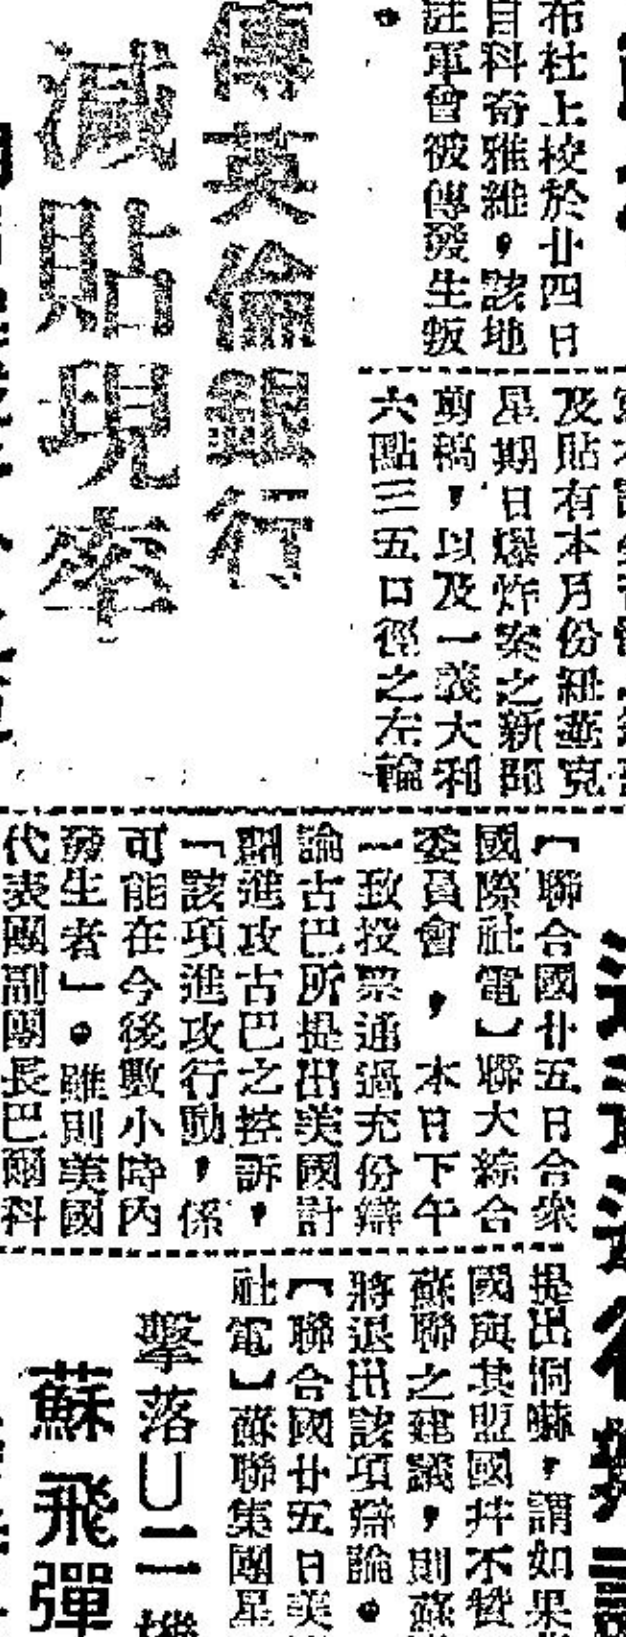 布杜上校於廿四日
自科奇雅維，該地
駐軍曾被傳發生叛
。
傳英倫銀行
減貼現率
及貼有本月份紐華克
星期日爆炸案之新聞
剪稿，以及一義大利
六點三五口徑之左輪
【聯合國廿五日合衆
國際社電】聯大綜合
委員會，本日下午
一致投票通過充份辯
論古巴所提出美國計
劃進攻古巴之控訴，
「該項進攻行動，係
可能在今後數小時內
發生者」。雖則美國
代表團副團長巴爾科
提出恫嚇，謂如果
國與其盟國拌不贊
蘇聯之建議，則蘇
將退出該項辯論。
【聯合國廿五日美
社電】蘇聯集團星
擊落U二機
蘇飛彈